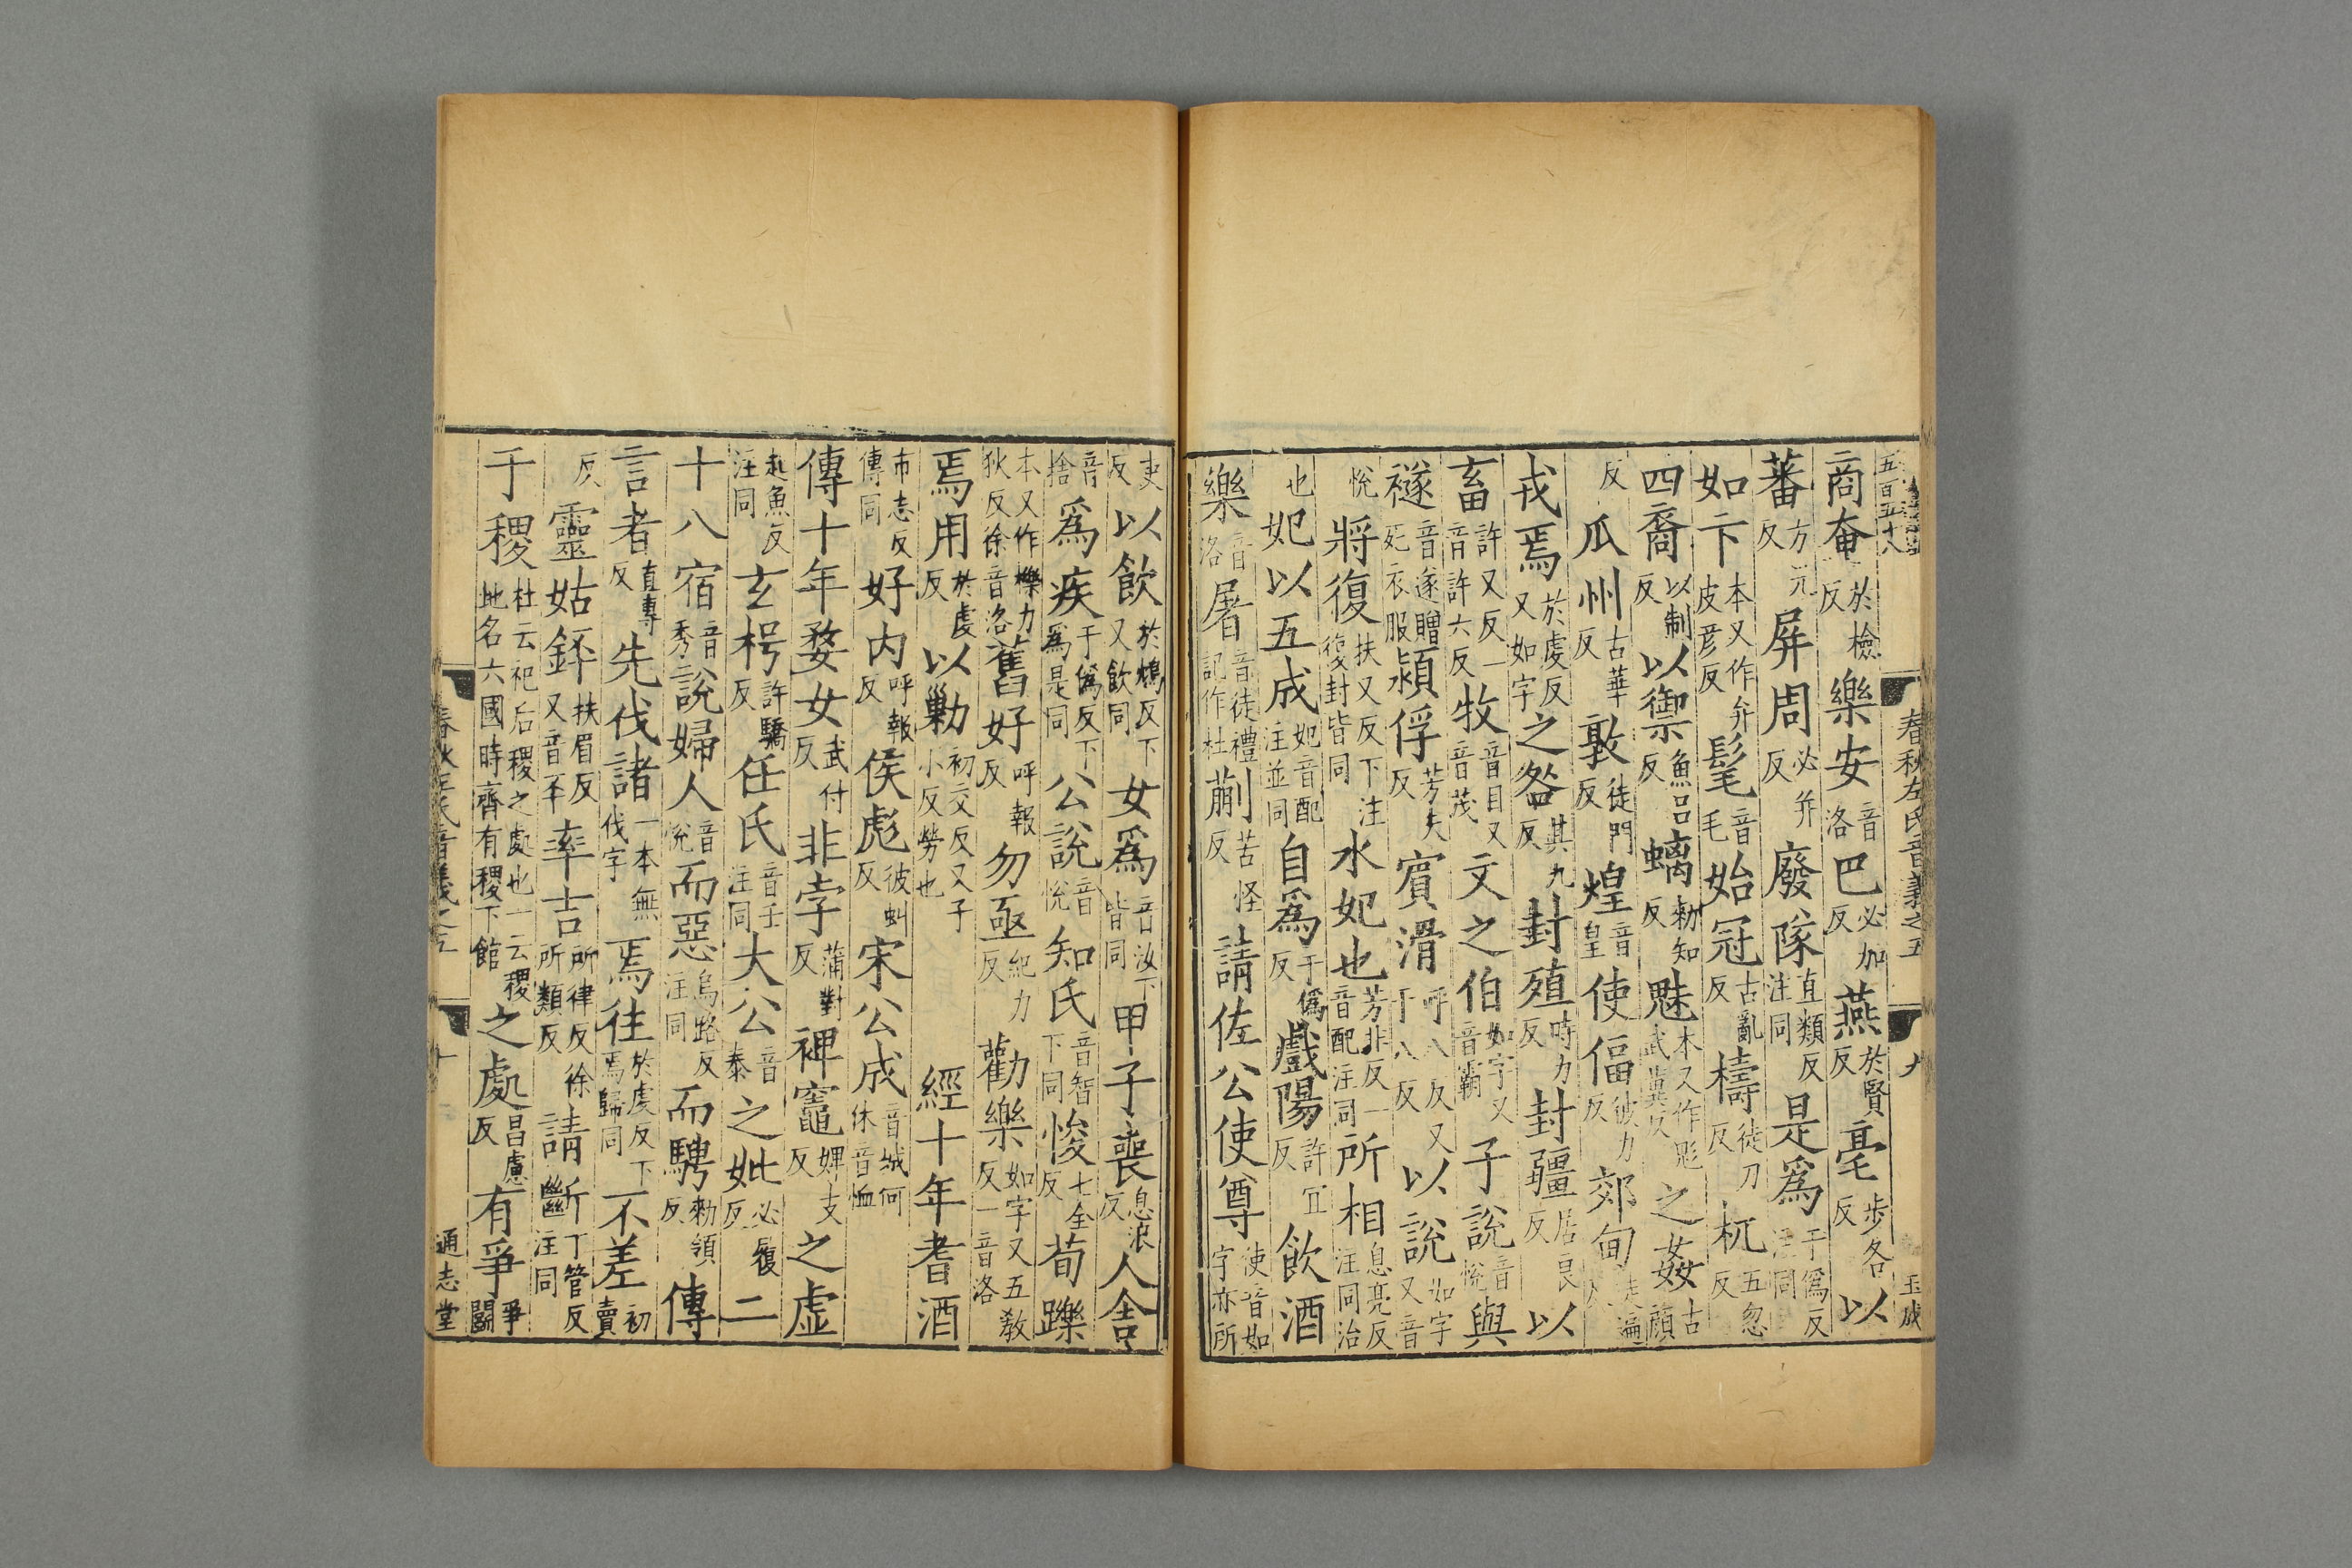 五百五十八 春秋左氏音義之五 九 玉成
商奄於檢反樂安音洛巴必加反燕於賢反亳步各反以
蕃方元反屏周必并反廢隊直類反注同是爲于爲反注同
如卞本又作弁皮彦反髦音毛始冠古亂反檮徒刀反杌五忽反
四裔以制反以禦魚呂反螭勑知反魅本又作鬽武冀反之姦古顔
反瓜州古華反敦徒門反煌音皇使偪彼力反郊甸徒遍反
戎焉於虔反又如字之咎其九反封殖時力反封疆居良反以
畜許又反一音許六反牧音目又音茂文之伯如字又音霸子說音悅與
襚音遂贈死衣服潁俘芳夫反賓滑呼八反又于八反以說如字又音
悅將復扶又反下注復封皆同水妃也芳非反一音配注同所相息亮反注同治
也妃以五成妃音配注並同自爲于僞反戲陽許宜反飲酒
樂音洛屠音徒禮記作杜蒯苦怪反請佐公使尊使音如字亦所
吏反以飲於鴆反下又飲同女爲音汝下皆同甲子喪息浪反人舍
音捨爲疾于僞反下爲是同公說音悅知氏音智下同悛七全反荀躒
本又作櫟力狄反徐音洛舊好呼報反勿亟紀力反勸樂如字又五敎反一音洛
焉用於虔反以勦初交反又子小反勞也 經十年耆酒
市志反傳同好內呼報反侯彪彼虯反宋公成音城何休音恤
傳十年婺女武付反非孛蒲對反裨竈婢支反之虛
起魚反注同玄枵許驕反任氏音壬注同大公音泰之妣必履反二
十八宿音秀說婦人音悅而惡烏路反注同而騁勑領反傳
言者直專反先伐諸一本無伐字焉往於虔反下焉歸同不差初賣
反靈姑銔扶眉反又音丕率吉所律反徐所類反請斷丁管反注同
于稷杜云祀后稷之處也一云稷地名六國時齊有稷下館之處昌慮反有爭爭鬭
春秋左氏音義之五 十 通志堂